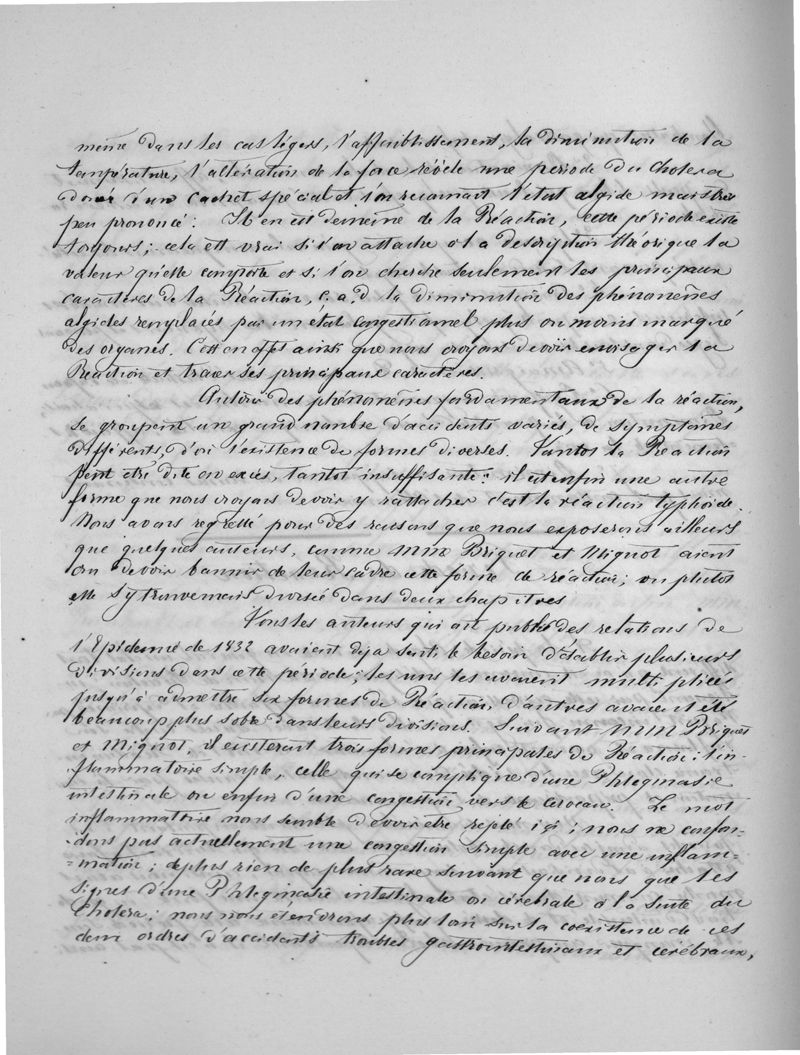 même dans les cas légers, l'affaiblissement, la diminution de la
température, l'altération de la face révèle une période du Cholera
doué d'un cachet spécial et l'on reconnait l'état algide mais très
peu prononcé : Il en est de même de la Réaction, cette période existe
toujours ; cela est vrai si l'on attache à la description théorique la
valeur qu'elle comporte et si l'on cherche seulement les principaux
caractères de la Réaction, c. a. d la diminution des phénomènes
algides remplacés par un état congestionnel plus ou moins marqué
des organes. C'est en effet ainsi que nous croyons devoir envisager la
Réaction et tracer ses principaux caractères.
Autour des phénomènes fondamentaux de la réaction,
se groupent un grand nombre d'accidents variés, de symptômes
différents, d'où l'existence de formes diverses. Tantot la Réaction
peut être dite en excès, tantot insuffisante : il est enfin une autre
forme que nous croyons devoir y rattacher c'est la réaction typhoïde.
Nous avons regretté pour des raisons que nous exposerons ailleurs
que quelques auteurs, comme MM Briquet et Mignot aient
cru devoir bannir de leur cadre cette forme de réaction ; ou plutot
elle s'y trouve mais divisée dans deux chapitres
Tous les auteurs qui ont publié des relations de
l'Epidémie de 1832 avaient deja senti le besoin d'établir plusieurs
divisions dans cette période ; les uns les avaient multipliées
jusqu'à admettre six formes de Réaction, d'autres avaient été
beaucoup plus sobre dans leurs divisions. Suivant MM Briquet
et Mignot, il existerait trois formes principales de Réaction : l'in-
flammatoire simple, celle qui se complique d'une Phlegmasie
intestinale ou enfin d'une congestion vers le cerveau. Le mot
inflammatoire nous semble devoir être rejeté ici ; nous ne confon-
-dons pas actuellement une congestion simple avec une inflam-
-mation ; de plus rien de plus rare suivant que nous que les
signes d'une Phlegmasie intestinale ou cérébrale à la suite du
Cholera ; nous nous étendrons plus loin sur la coexistence de ces
deux ordres d'accidents troubles gastrointestinaux et cérébraux,